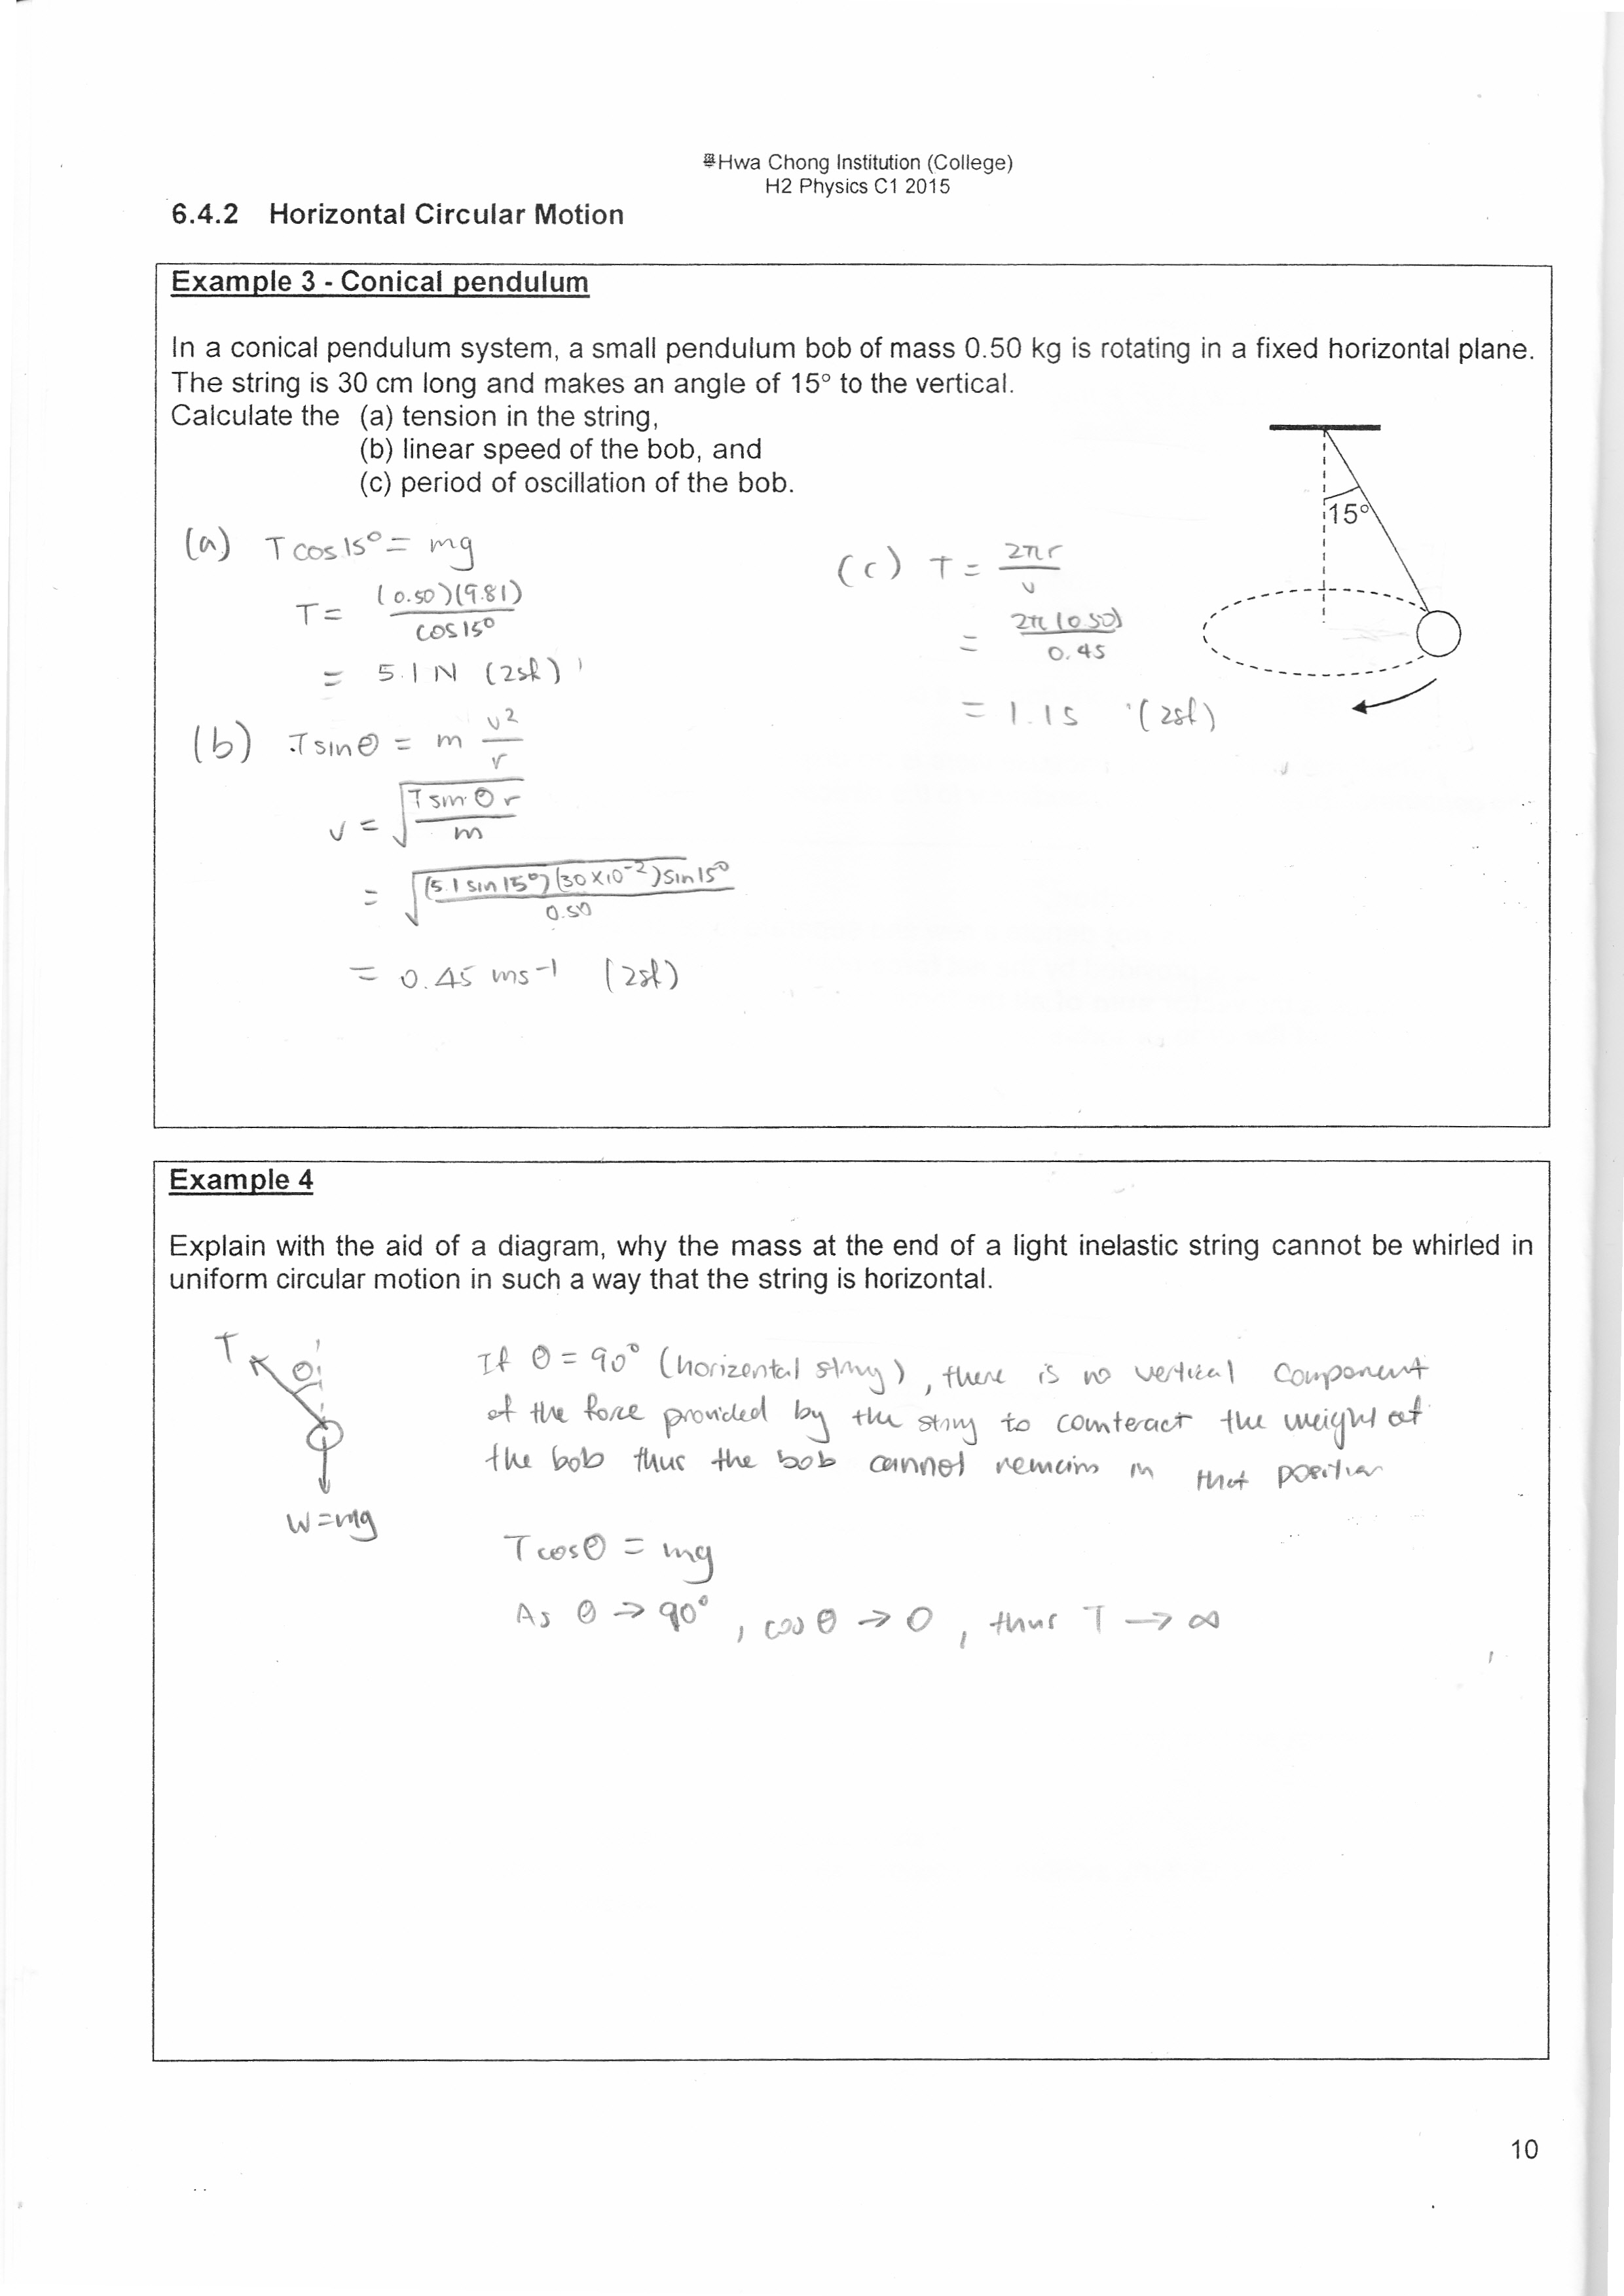 Hwa Chong Institution (College)
H2 Physics C1 2015
6.4.2 Horizontal Circular Motion
Example 3 - Conical pendulum
In a conical pendulum system, a small pendulum bob of mass 0.50 kg is rotating in a fixed horizontal plane.
The string is 30 cm long and makes an angle of 15° to the vertical.
Calculate the (a) tension in the string,
(b) linear speed of the bob, and
(c) period of oscillation of the bob.
15°
(a) T cos 15° = mg
T = (0.50)(9.81) / cos 15°
= 5.1 N (2sf)
(b) T sin θ = m v² / r
v = √(T sin θ r / m)
= √((5.1 sin 15°)(30×10⁻²) sin 15° / 0.50)
= 0.45 ms⁻¹ (2sf)
(c) T = 2πr / v
= 2π(0.50) / 0.45
= 1.1s (2sf)
Example 4
Explain with the aid of a diagram, why the mass at the end of a light inelastic string cannot be whirled in
uniform circular motion in such a way that the string is horizontal.
T
θ
W = mg
If θ = 90° (horizontal string), there is no vertical component
of the force provided by the string to counteract the weight of
the bob thus the bob cannot remain in that position
T cos θ = mg
As θ → 90°, cos θ → 0, thus T → ∞
10